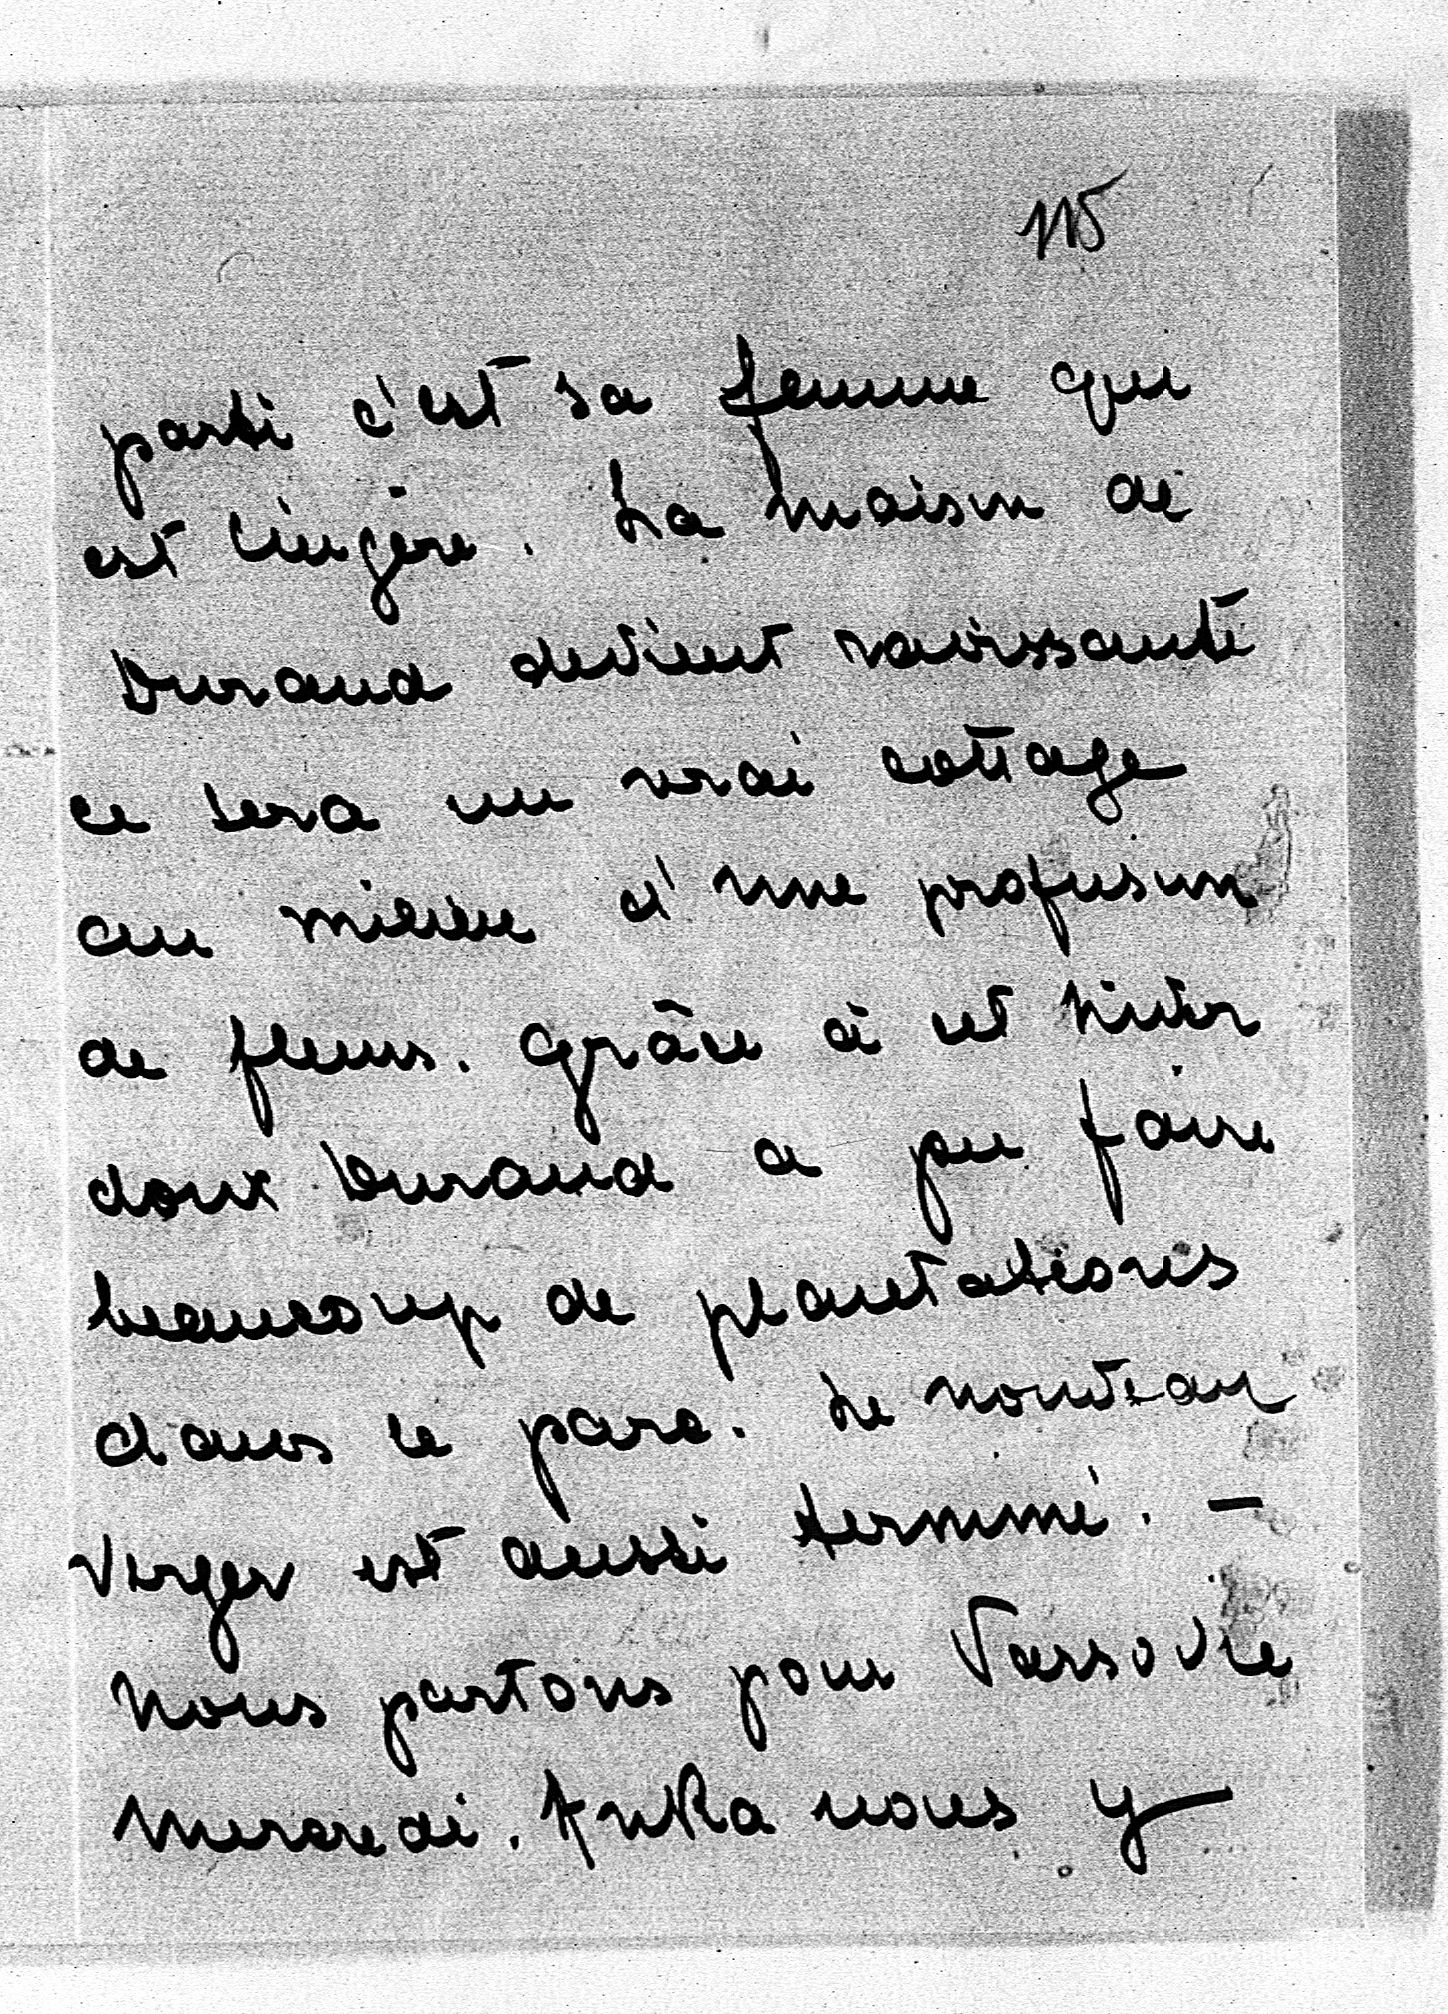 115
parti c'est sa femme qui
est lingère. La maison de
Durand devient ravissante
ce sera un vrai cottage
au milieu d'une profusion
de fleurs. Grâce à cet hiver
doux Durand a pu faire
beaucoup de plantations
dans le parc. Le nouveau
verger est aussi terminé. —
Nous partons pour Varsovie
mercredi. Anka nous y